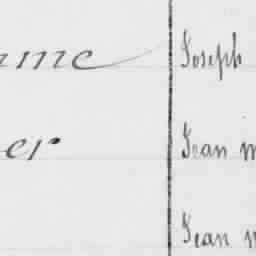 mme Joseph
er Jean m
Jean m